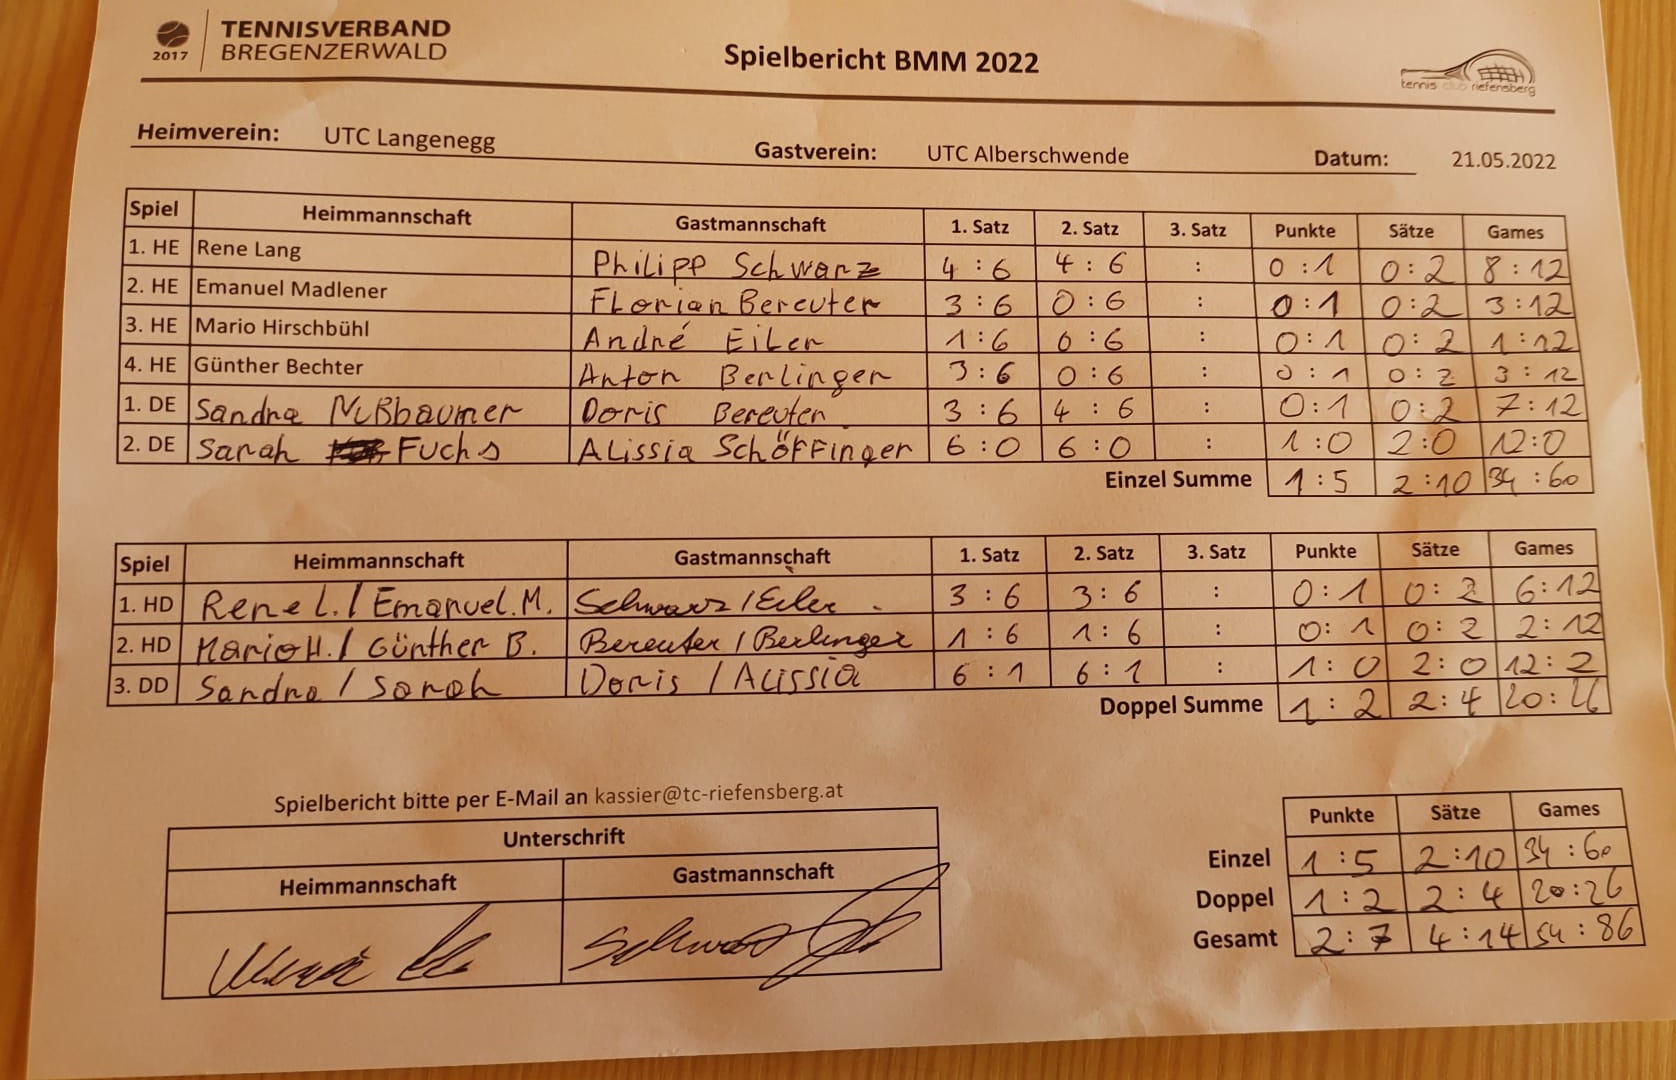 TENNISVERBAND
BREGENZERWALD
2017
Spielbericht BMM 2022
tennis club riefensberg
Heimverein: UTC Langenegg Gastverein: UTC Alberschwende Datum: 21.05.2022
Spiel Heimmannschaft Gastmannschaft 1. Satz 2. Satz 3. Satz Punkte Sätze Games
1. HE Rene Lang Philipp Schwarz 4 : 6 4 : 6 : 0 : 1 0 : 2 8 : 12
2. HE Emanuel Madlener Florian Bereuter 3 : 6 0 : 6 : 0 : 1 0 : 2 3 : 12
3. HE Mario Hirschbühl André Eiler 1 : 6 0 : 6 : 0 : 1 0 : 2 1 : 12
4. HE Günther Bechter Anton Berlinger 3 : 6 0 : 6 : 0 : 1 0 : 2 3 : 12
1. DE Sandra Nußbaumer Doris Bereuter 3 : 6 4 : 6 : 0 : 1 0 : 2 7 : 12
2. DE Sarah Fuchs Alissia Schöffinger 6 : 0 6 : 0 : 1 : 0 2 : 0 12 : 0
Einzel Summe 1 : 5 2 : 10 34 : 60
Spiel Heimmannschaft Gastmannschaft 1. Satz 2. Satz 3. Satz Punkte Sätze Games
1. HD Rene L. / Emanuel. M. Schwarz / Eiler 3 : 6 3 : 6 : 0 : 1 0 : 2 6 : 12
2. HD Mario H. / Günther B. Bereuter / Berlinger 1 : 6 1 : 6 : 0 : 1 0 : 2 2 : 12
3. DD Sandra / Sarah Doris / Alissia 6 : 1 6 : 1 : 1 : 0 2 : 0 12 : 2
Doppel Summe 1 : 2 2 : 4 20 : 26
Spielbericht bitte per E-Mail an kassier@tc-riefensberg.at
Unterschrift
Heimmannschaft Gastmannschaft
Punkte Sätze Games
Einzel 1 : 5 2 : 10 34 : 60
Doppel 1 : 2 2 : 4 20 : 26
Gesamt 2 : 7 4 : 14 54 : 86